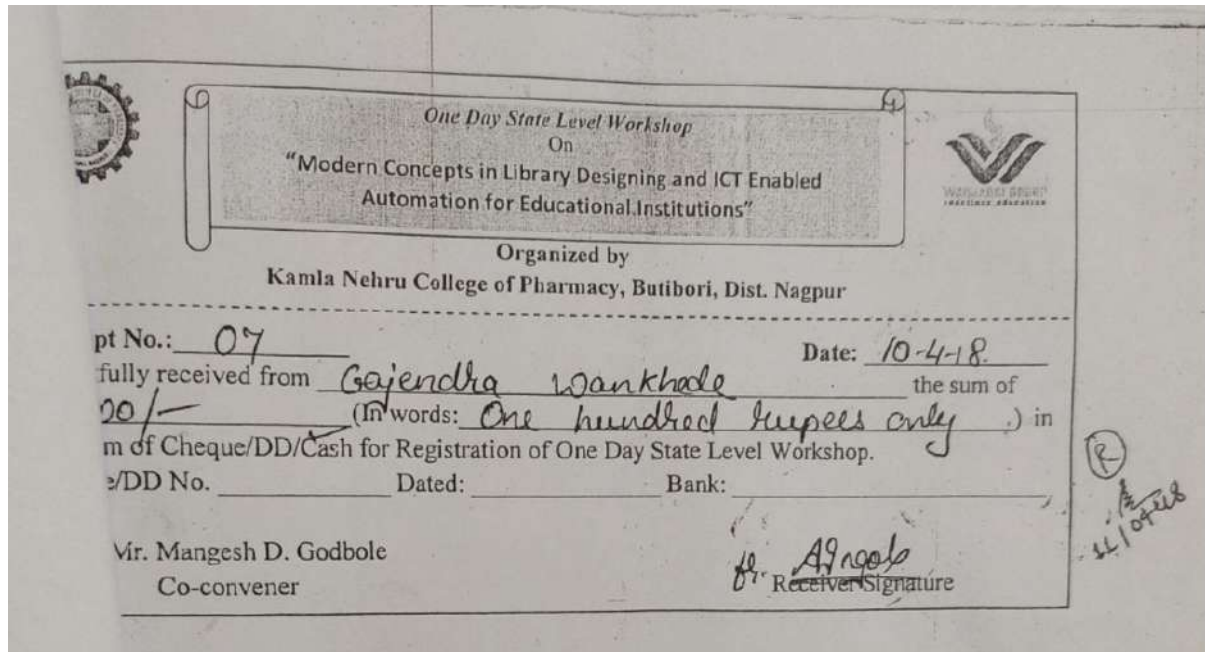 One Day State Level Workshop
On
"Modern Concepts in Library Designing and ICT Enabled
Automation for Educational Institutions"
Organized by
Kamla Nehru College of Pharmacy, Butibori, Dist. Nagpur
pt No.: 07 Date: 10-4-18.
fully received from Gajendra Wankhade the sum of
00/- (In words: One hundred rupees only.) in
m of Cheque/DD/Cash for Registration of One Day State Level Workshop.
e/DD No. Dated: Bank:
Mr. Mangesh D. Godbole
Co-convener
Receiver Signature
R